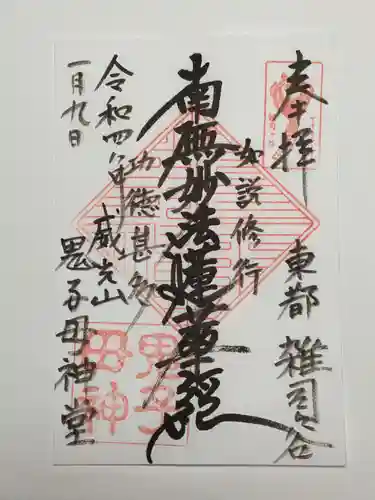 奉拝
東都 雑司谷
如説修行
南無妙法蓮華経
功徳甚多
威光山
鬼子母神堂
令和四年
一月九日
鬼子
母神